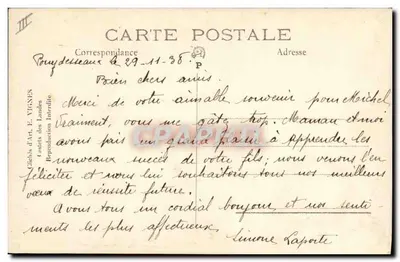 III
CARTE POSTALE
Correspondance
Adresse
P
Pouydesseaux le 29-11-38.
Bien chers amis.
Merci de votre aimable souvenir pour Michel,
Vraiment, vous me gâtez trop. Maman et moi
avons pris un grand plaisir à apprendre les
nouveaux succès de votre fils, nous venons l'en
féliciter et nous lui souhaitons tous nos meilleurs
vœux de réussite future.
Avous tous un cordial bonjour et nos senti-
ments les plus affectueux.
Simone Laporte
Clichés d'Art. E. VIGNES
Castets des Landes
Reproduction Interdite